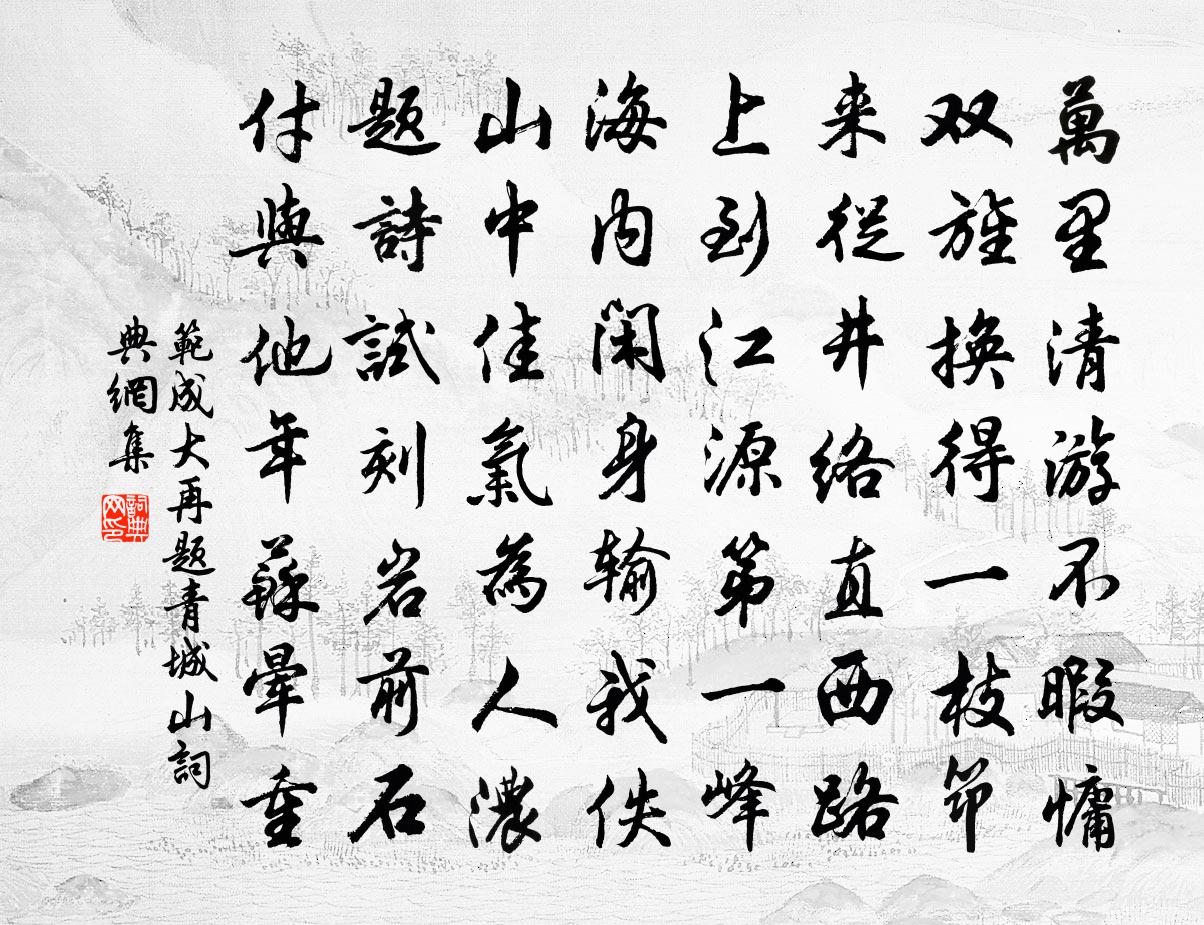 萬里清游不暇慵
双旌換得一枝筇
来從井絡直西路
上到江源第一峰
海内閑身輸我佚
山中佳氣為人濃
題詩試刻岩前石
付與他年蘚暈重
範成大再题青城山詞
典網集
詞典网印